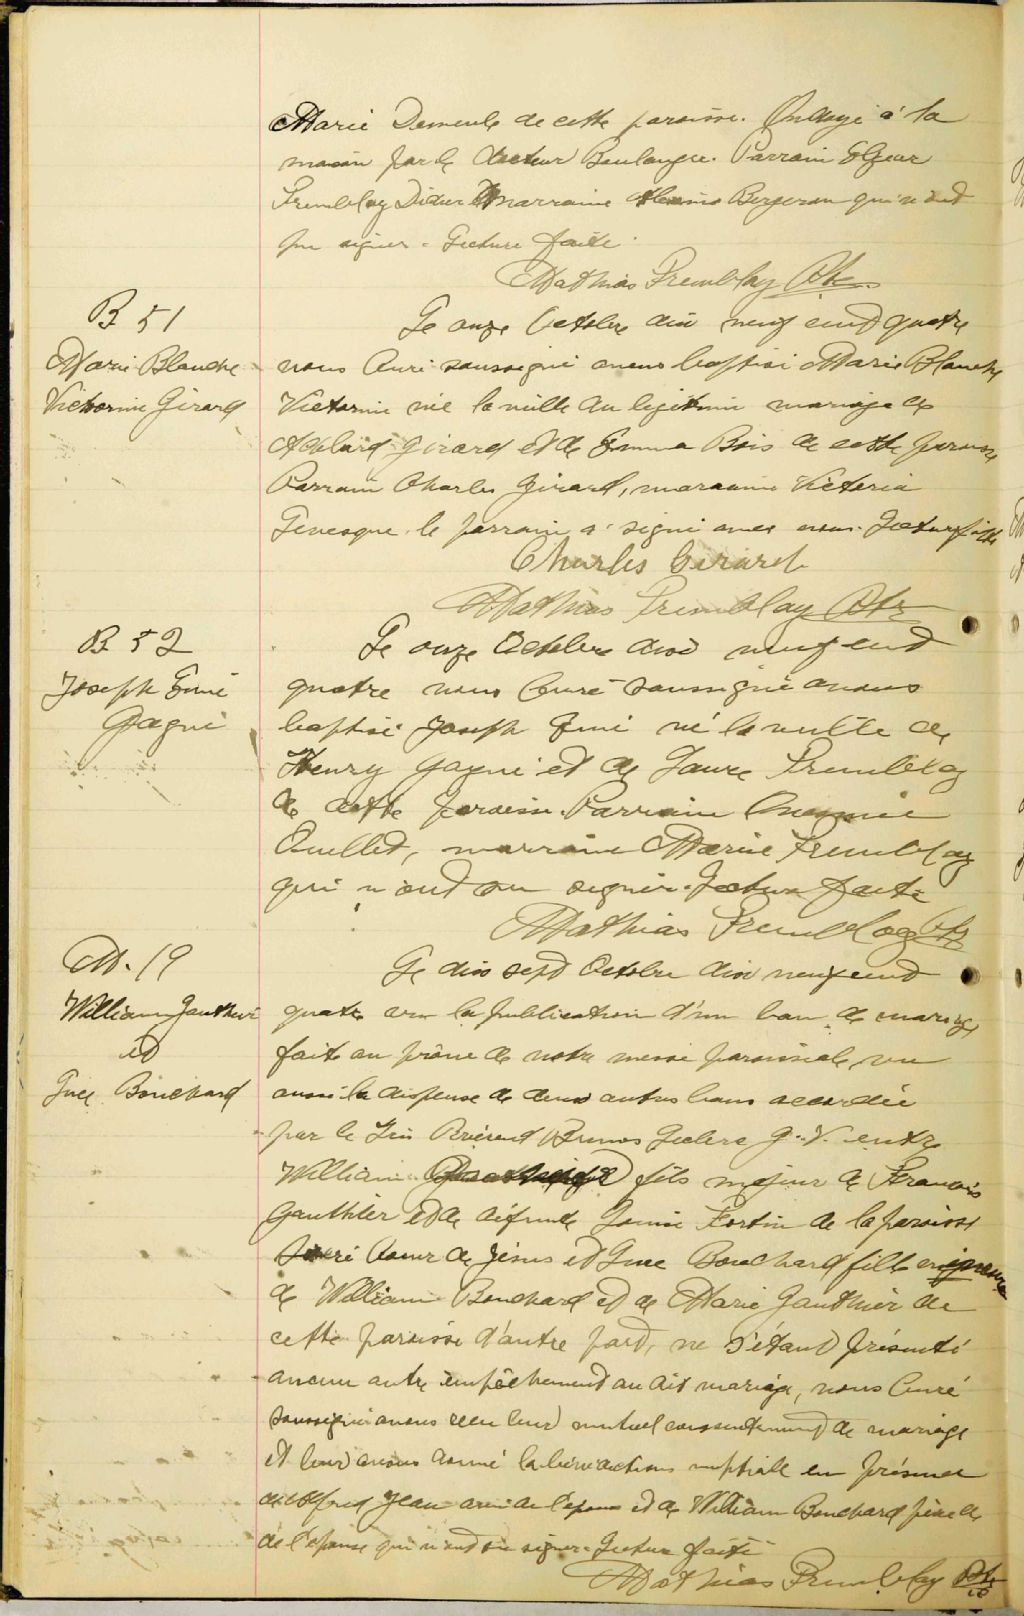 Marie Demeule de cette paroisse. Ondoyé à la
maison par le docteur Boulanger. Parrain Elzear
Tremblay Didier marraine Bergeron qui n'ont
pu signer. Lecture faite.
Mathias Tremblay Ptr
B 51
Marie Blanche
Victorine Girard
Le onze Octobre dix neuf cent quatre
nous Curé soussigné avons baptisé Marie Blanche
Victorine née la veille du legitime mariage de
Adelard Girard et de Emma Bois de cette paroisse
Parrain Charles Girard, marraine Victoria
Levesque. le parrain a signé avec nous. Lecture faite
Charles Girard
Mathias Tremblay Ptr
B 52
Joseph Emé
Gagné
Le onze Octobre dix neuf cent
quatre nous Curé soussigné avons
baptisé Joseph né la veille de
Henry Gagné et de Laure Tremblay
de cette paroisse. Parrain Onesime
Ouellet, marraine Marie Tremblay
qui n'ont su signer. Lecture faite
Mathias Tremblay Ptr
M. 19
William Gauthier
et
Bouchard
Le dix sept Octobre dix neuf cent
quatre vu la publication d'un ban de mariage
faite au prône de notre messe paroissiale, vu
aussi la dispense de deux autres bans accordée
par le Très Révérend Leclerc G. V. entre
William fils majeur de Francois
Gauthier et de défunte Fortin de la paroisse
Sacré Coeur de Jésus et Bouchard fille mineure
de William Bouchard et de Marie Gauthier de
cette paroisse d'autre part, ne s'étant présenté
aucun autre empêchement au dit mariage, nous Curé
soussigné avons reçu leur mutuel consentement de mariage
et leur avons donné la bénédiction nuptiale en présence
de Alfred Jean ami de l'epoux et de William Bouchard père de
de l'epouse qui n'ont su signer. Lecture faite
Mathias Tremblay Ptr